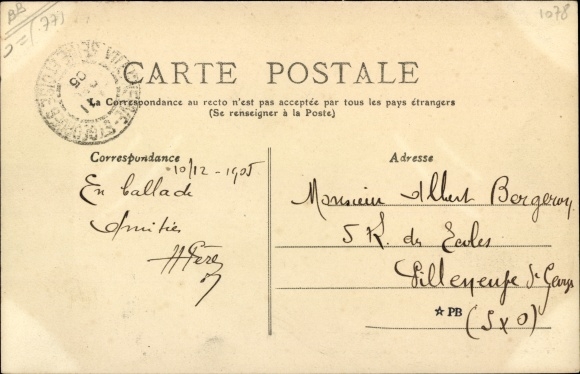 BB
(.77)
1078
CARTE POSTALE
La Correspondance au recto n'est pas acceptée par tous les pays étrangers
(Se renseigner à la Poste)
Correspondance
10/12 - 1905
En ballade
Amitiés
Adresse
Monsieur Albert Bergeron
5 R. des Ecoles
Villeneuve St Georges
(S x O)
☆ PB